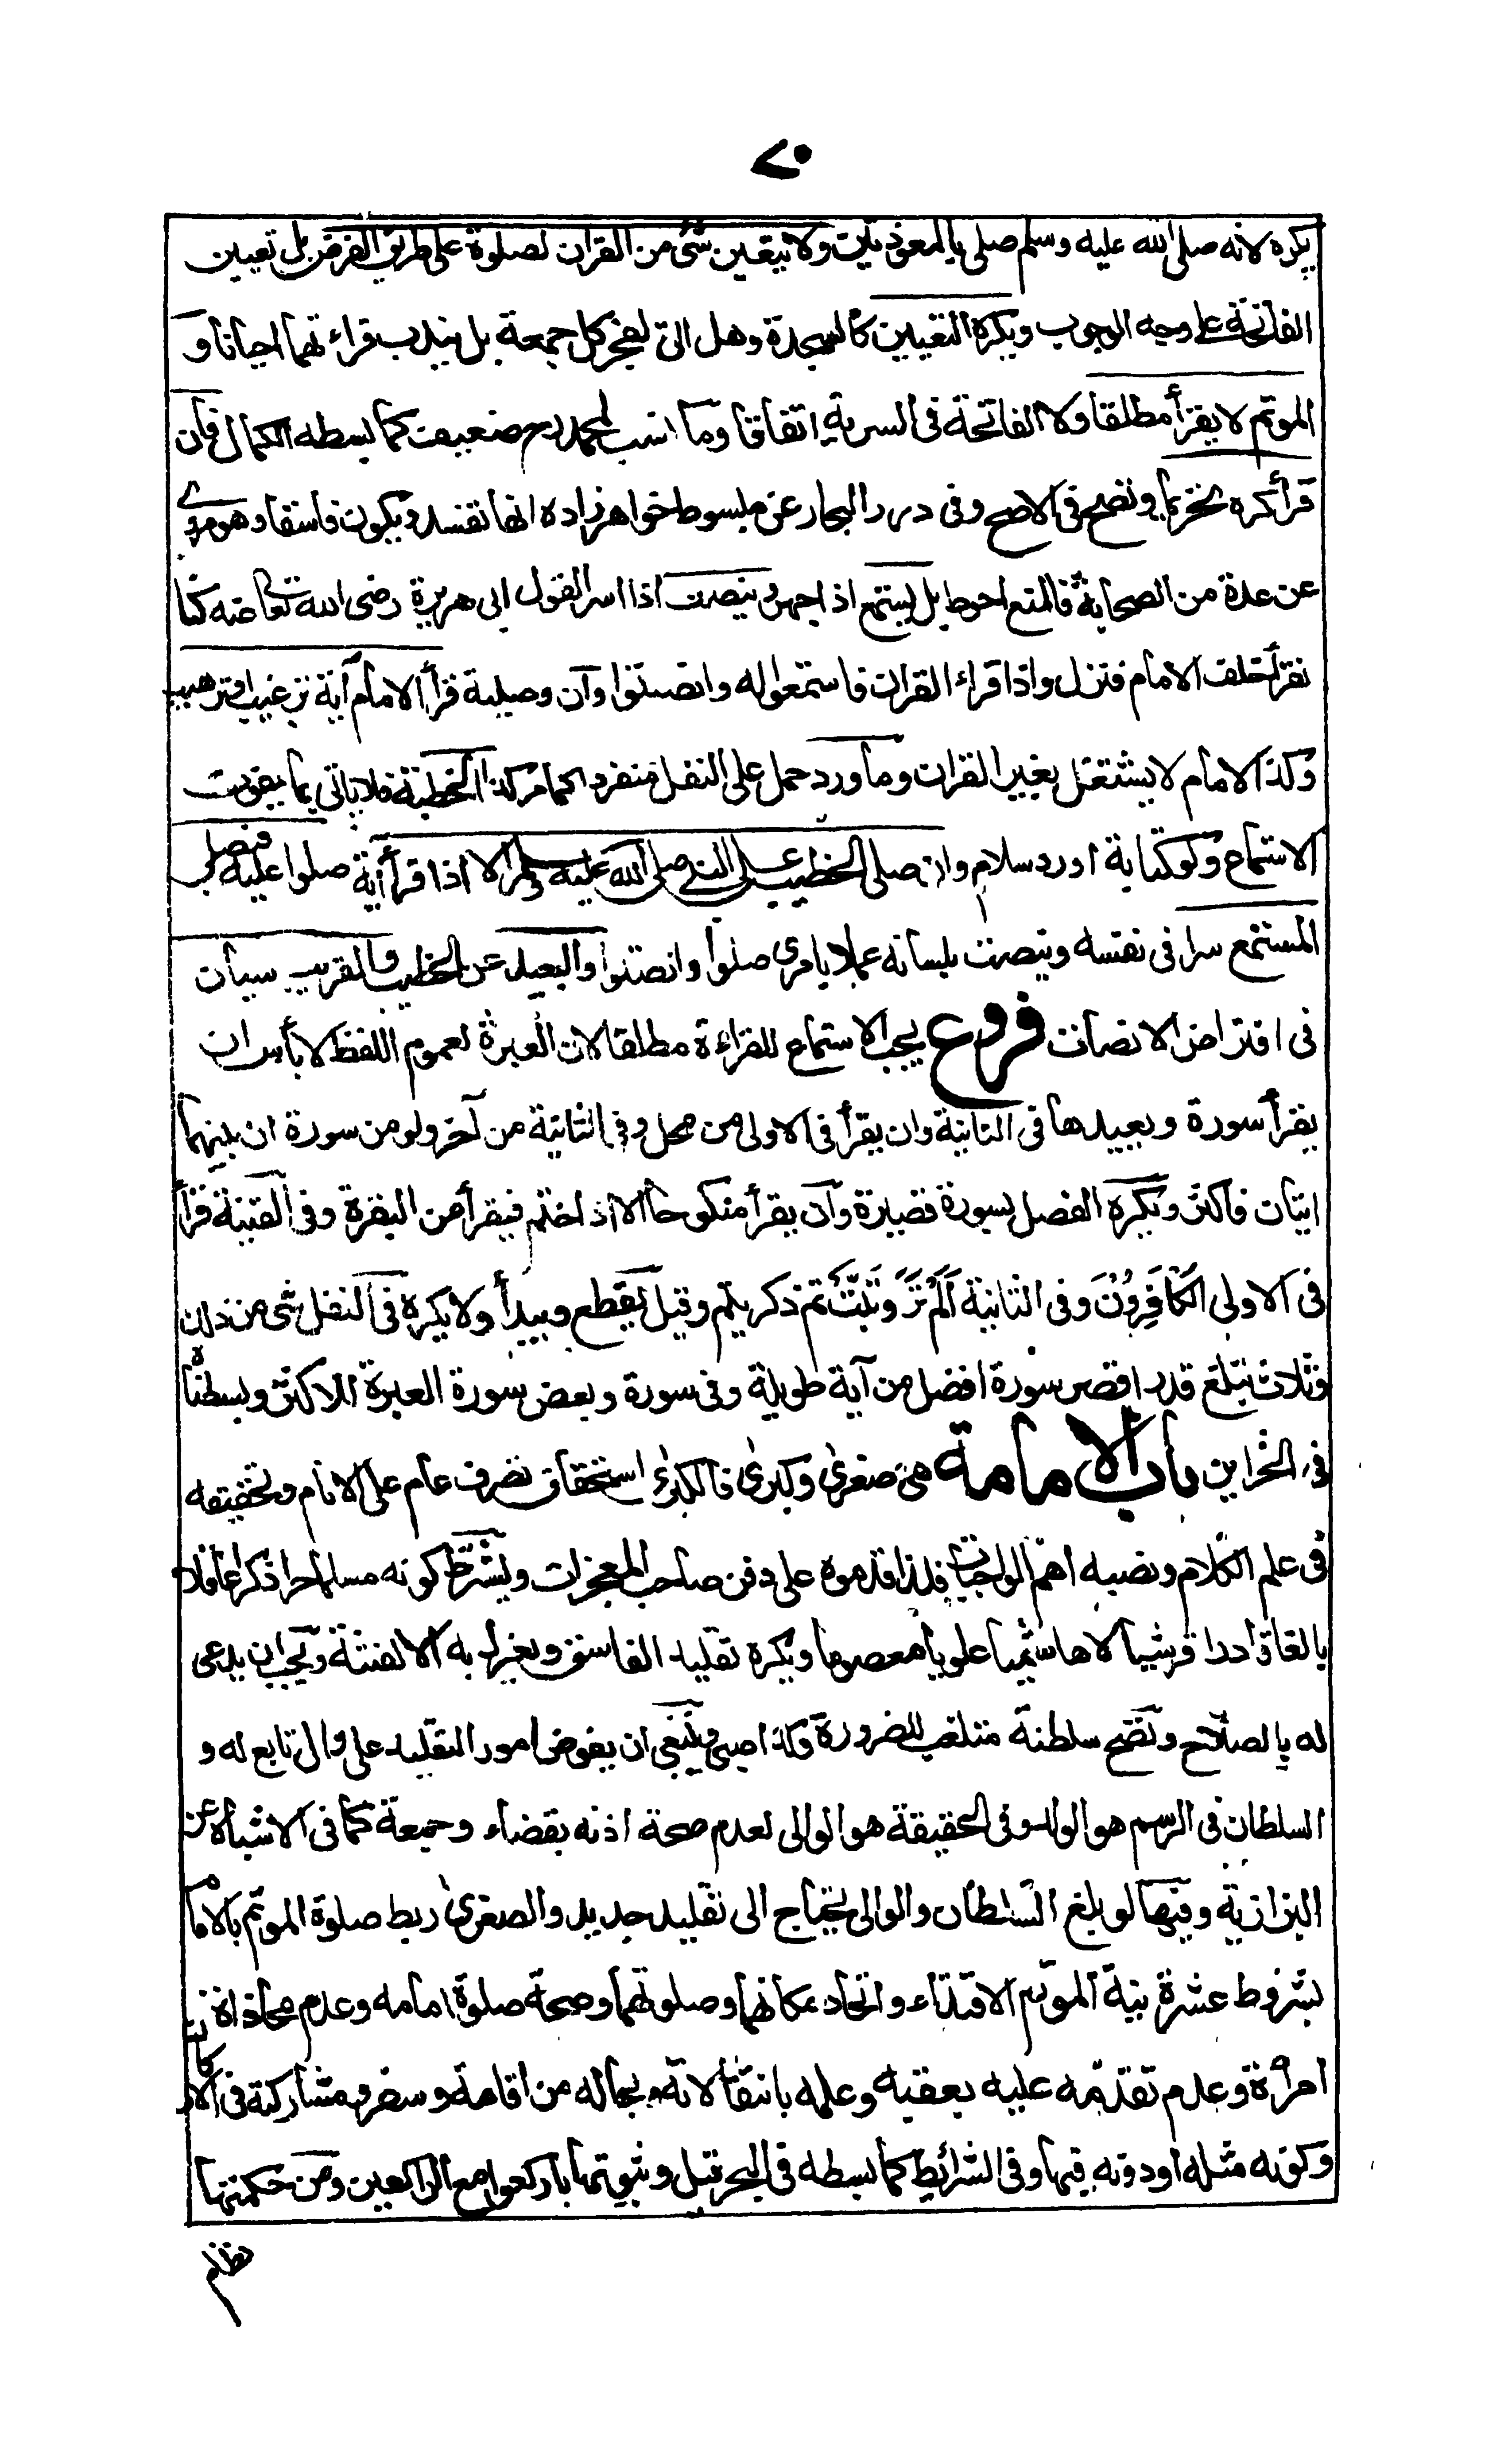 ٧٠
يكره لانه صلى الله عليه وسلم صلى بالمعوذتين ولا يتعين شئ من القران لصلوة على طريق الفرض بل تعيين
الفاتحة على وجه الوجوب ويكره التعيين كالسجدة وهل اتى لفجر كل جمعة بل يندب قراءتهما احيانا و
الموتم لا يقرأ مطلقا ولا الفاتحة فى السرية اتفاقا وما نسب لمحمد رح ضعيف كما بسطه الكمال فان
قرأ كره تحريما وتصح فى الاصح وفى درر البحار عن مبسوط خواهر زاده انها تفسد ويكون فاسقا وهو مروى
عن عدة من الصحابة فالمنع احوط بل يستمع اذا جهر وينصت اذا اسر لقول ابى هريرة رضى الله تعا عنه كنا
نقرأ خلف الامام فنزل واذا قراء القران فاستمعوا له وانصتوا وان وصلية قرأ الامام آية ترغيب او ترهيب
وكذا الامام لا يشتغل بغير القران وما ورد حمل على النفل منفردا كما مر كذا الخطبة فلا ياتى بما يفوت
الاستماع ولو كتابة او رد سلام وان صلى الخطيب على النبى صلى الله عليه وسلم الا اذا قرأ آية صلوا عليه فيصلى
المستمع سرا فى نفسه وينصت بلسانه عملا بامرى صلوا وانصتوا والبعيد عن الخطيب والقريب سيان
فى افتراض الانصات فروع يجب الاستماع للقراءة مطلقا لان العبرة لعموم اللفظ لا بأس ان
يقرأ سورة ويعيدها فى الثانية وان يقرأ فى الاولى من محل وفى الثانية من آخر ولو من سورة ان بينهما
ايتان فاكثر ويكره الفصل بسورة قصيرة وان يقرأ منكوسا الا اذا ختم فيقرأ من البقرة وفى القنية قرأ
فى الاولى الكَافِرُوْنَ وفى الثانية اَلَمْ تَرَ وتَبَّتْ ثم ذكر يتم وقيل يقطع ويبدأ ولا يكره فى النفل شئ من ذلك
وثلاث تبلغ قدر اقصر سورة افضل من آية طويلة وفى سورة وبعض سورة العبرة للاكثر وبسطناه
فى الخزاين باب الامامة هى صغرى وكبرى فالكبرى استحقاق تصرف عام على الانام وتحقيقه
فى علم الكلام ونصبه اهم الواجبات فلذا قدموه على دفن صاحب المعجزات ويشترط كونه مسلما حرا ذكرا عاقلا
بالغا قادرا قرشيا لا هاشميا علويا معصوما ويكره تقليد الفاسق ويعزل به الا لفتنة ويجب ان يدعى
له بالصلاح وتصح سلطنة متغلب للضرورة وكذا صبى وينبغى ان يفوض امور التقليد على وال تابع له و
السلطان فى الرسم هو الولد وفى الحقيقة هو الوالى لعدم صحة اذنه بقضاء وجمعة كما فى الاشباه عن
البزازية وفيها لو بلغ السلطان والوالى يحتاج الى تقليد جديد والصغرى ربط صلوة الموتم بالامام
بشروط عشرة نية الموتم الاقتداء واتحاد مكانهما وصلوتهما وصحة صلوة امامه وعدم محاذاة
امرأة وعدم تقدمه عليه بعقبه وعلمه بانتقالاته وبحاله من اقامة وسفر ومشاركته فى الاركان
وكونه مثله او دونه فيها وفى الشرائط كما بسطه فى البحر قيل وثبوتها باركعوا مع الراكعين ومن حكمتها
نظام